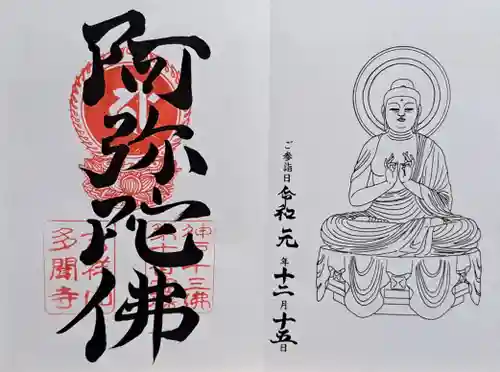 阿弥陀佛
神戸十三佛
第十番
吉祥山
多聞寺
ご参詣日 令和元年十二月十五日